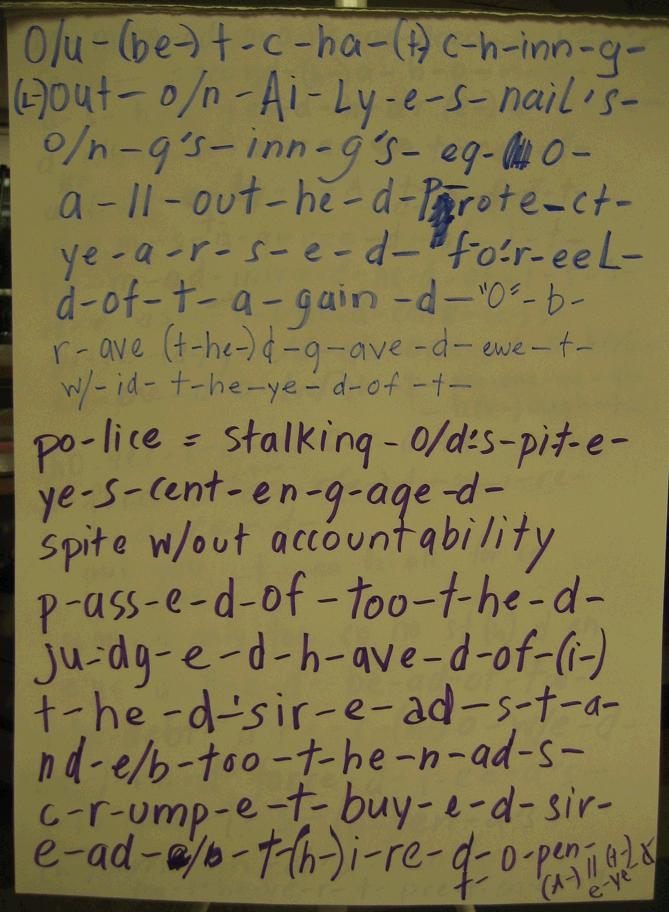 O/u-(be-)t-c-ha-(t)c-h-inn-g-
(L-)out-o/n-Ai-Ly-e-s-nail's-
o/n-g's-inn-g's-eg-o-
a-ll-out-he-d-Prote-ct-
ye-a-r-s-e-d-"fo:r-eeL-
d-of-t-a-gain-d-"O"-b-
r-ave (t-he-)d-g-ave-d-ewe-t-
w/-id-t-he-ye-d-of-t-
po-lice = stalking-O/d:s-pit-e-
ye-s-cent-en-g-age-d-
spite w/out accountability
p-ass-e-d-of-too-t-he-d-
ju-dg-e-d-h-ave-d-of-(i-)
t-he-d-'sir-e-ad-s-t-a-
nd-e/b-too-t-he-n-ad-s-
c-r-ump-e-t-buy-e-d-sir-
e-ad-e/b-t-(h-)i-re-d-o-pen-